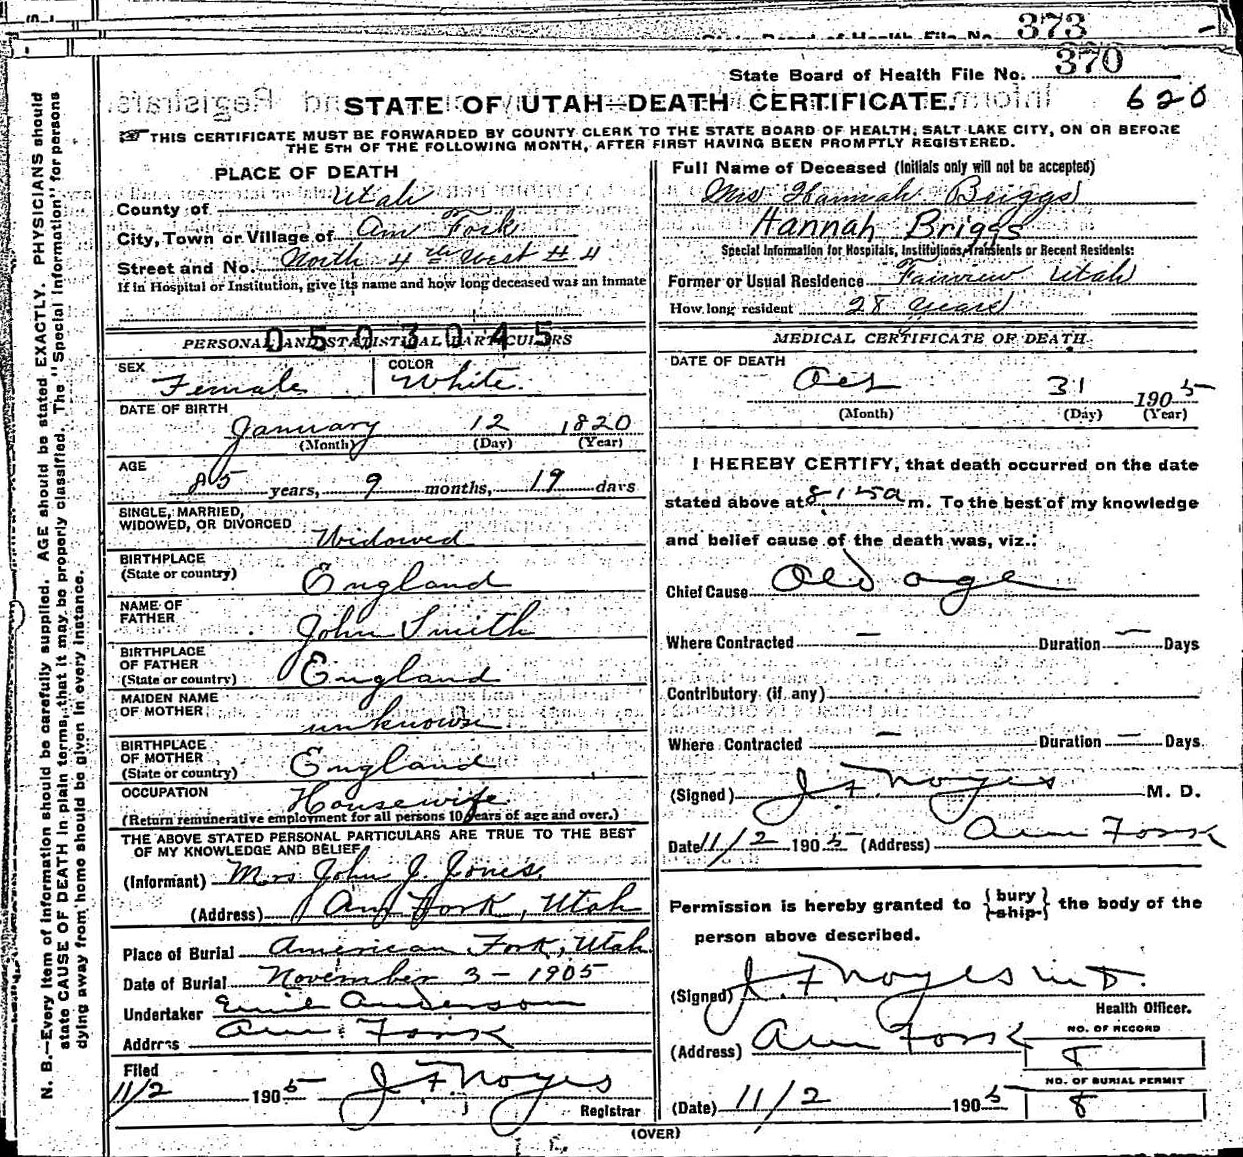 373
State Board of Health File No. 370
620
STATE OF UTAH—DEATH CERTIFICATE.
THIS CERTIFICATE MUST BE FORWARDED BY COUNTY CLERK TO THE STATE BOARD OF HEALTH, SALT LAKE CITY, ON OR BEFORE
THE 5TH OF THE FOLLOWING MONTH, AFTER FIRST HAVING BEEN PROMPTLY REGISTERED.
N. B.—Every item of information should be carefully supplied. AGE should be stated EXACTLY. PHYSICIANS should
state CAUSE OF DEATH in plain terms, that it may be properly classified. The "Special Information" for persons
dying away from home should be given in every instance.
PLACE OF DEATH
County of Utah
City, Town or Village of Am Fork
Street and No. North 4th West # 4
If in Hospital or Institution, give its name and how long deceased was an inmate
0503045
PERSONAL AND STATISTICAL PARTICULARS
SEX Female COLOR White.
DATE OF BIRTH
January 12 1820
(Month) (Day) (Year)
AGE
85 years, 9 months, 19 days
SINGLE, MARRIED,
WIDOWED, OR DIVORCED Widowed
BIRTHPLACE
(State or country) England
NAME OF
FATHER John Smith
BIRTHPLACE
OF FATHER
(State or country) England
MAIDEN NAME
OF MOTHER unknown
BIRTHPLACE
OF MOTHER
(State or country) England
OCCUPATION Housewife
(Return remunerative employment for all persons 10 years of age and over.)
THE ABOVE STATED PERSONAL PARTICULARS ARE TRUE TO THE BEST
OF MY KNOWLEDGE AND BELIEF
(Informant) Mrs John J. Jones,
(Address) Am Fork, Utah
Place of Burial American Fork, Utah
Date of Burial November 3 - 1905
Undertaker Emil Anderson
Address Am. Fork
Filed
11/2 1905 J F Noyes
Registrar
Full Name of Deceased (Initials only will not be accepted)
Mrs Hannah Briggs
Hannah Briggs
Special Information for Hospitals, Institutions, Transients or Recent Residents:
Former or Usual Residence Fairview Utah
How long resident 28 years
MEDICAL CERTIFICATE OF DEATH
DATE OF DEATH
Oct 31 1905
(Month) (Day) (Year)
I HEREBY CERTIFY, that death occurred on the date
stated above at 8:15 a m. To the best of my knowledge
and belief cause of the death was, viz.:
Chief Cause Old age
Where Contracted — Duration — Days
Contributory (if any)
Where Contracted — Duration — Days.
(Signed) J F Noyes M. D.
Date 11/2 1905 (Address) Am Fork
Permission is hereby granted to {bury ship} the body of the
person above described.
(Signed) J. F Noyes M D.
Health Officer.
(Address) Am Fork
NO. OF RECORD
8
NO. OF BURIAL PERMIT
8
(Date) 11/2 1905
(OVER)